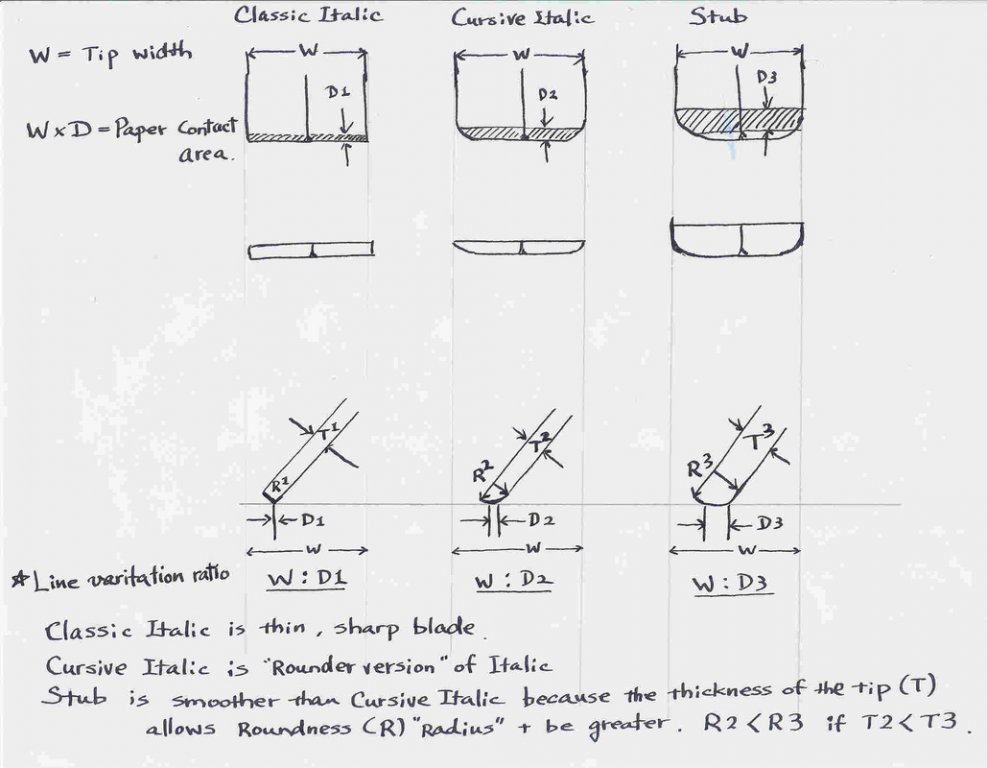 Classic Italic Cursive Italic Stub
W = Tip width
W W W
D1 D2 D3
W x D = Paper Contact
area.
T1 T2 T3
R1 R2 R3
D1 D2 D3
W W W
* Line varitation ratio W : D1 W : D2 W : D3
Classic Italic is thin, sharp blade.
Cursive Italic is "Rounder version" of Italic
Stub is smoother than Cursive Italic because the thickness of the tip (T)
allows Roundness (R) "Radius" + be greater. R2 < R3 if T2 < T3.